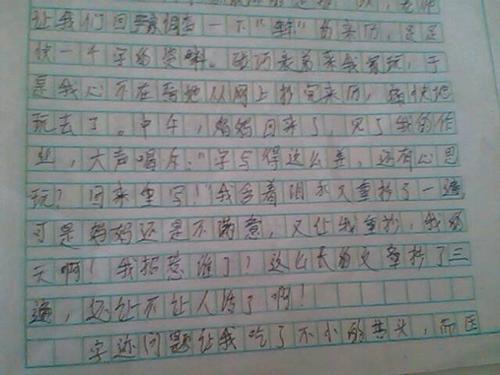 让我们回家调查一下"蝉"的来历，是是
快一个字的
表弟来我家玩，于
是我心不在焉地从网上抄完来历，匆快地
玩去了。中午，妈妈回来了，见了我的作
业，大声喝斥："字写得这么差，还有心思
玩？回来重写！"我含着泪水又重抄了一遍，
可是妈妈还是不满意，又让我重抄，我的
天啊！我招惹谁了？这么长的文章抄了三
遍，还让不让人活了啊！
字迹问题让我吃了不小的苦头，而医